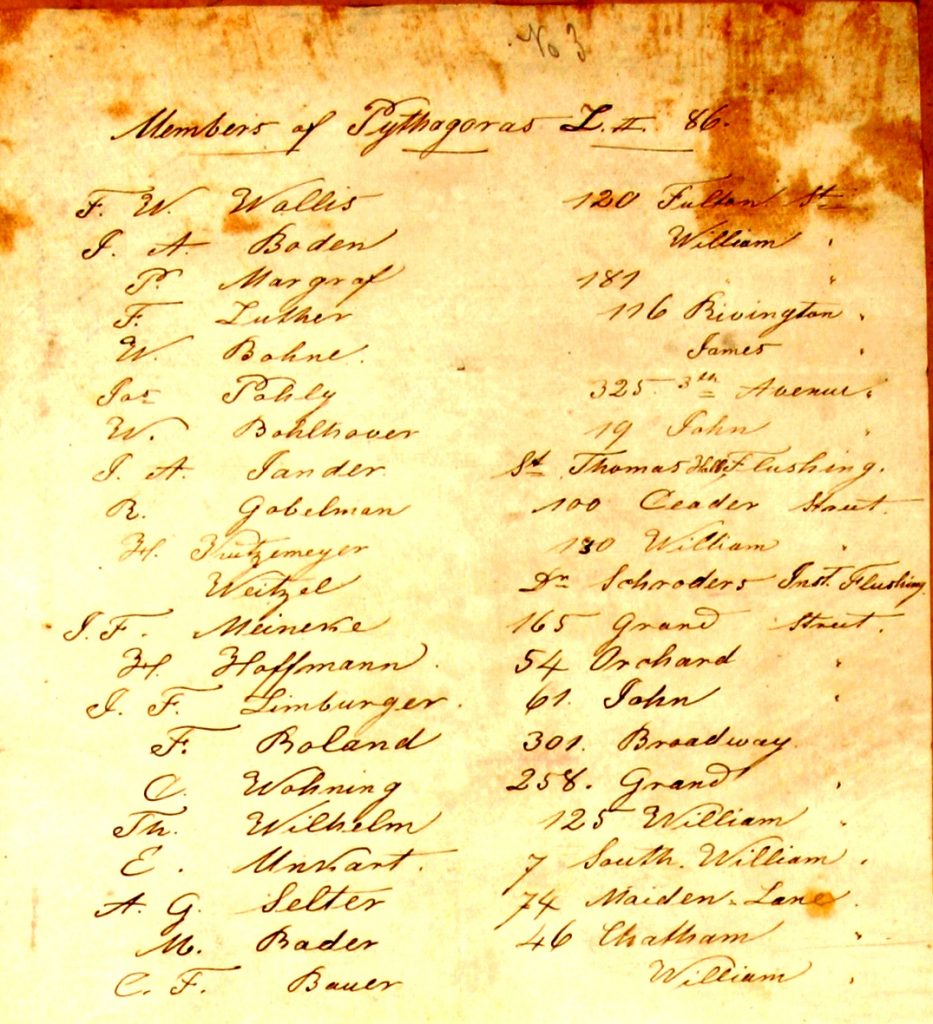 No 3
Members of Pythagoras L. II. 86.
F. W. Wallis 120 Fulton St
J. A. Boden William "
P. Margraf 181 " "
F. Luther 116 Rivington "
W. Bohne. James "
Jos Pohly 325 3th Avenue "
W. Bohlhover 19 John "
J. A. Jander St Thomas Hall Flushing.
R. Gobelman 100 Ceader Street.
H. 130 William "
Weitzel Dr Schroders Inst. Flushing
J. F. Meineke 165 Grand Street.
H. Hoffmann. 54 Orchard "
J. F. Limburger. 61. John "
F. Boland 301. Broadway.
C. Wohning 258. Grand "
Th. Wilhelm 125 William "
E. Unkart. 7 South. William "
A. G. Selter 74 Maiden-Lane.
M. Bader 46 Chatham "
C. F. Bauer William "